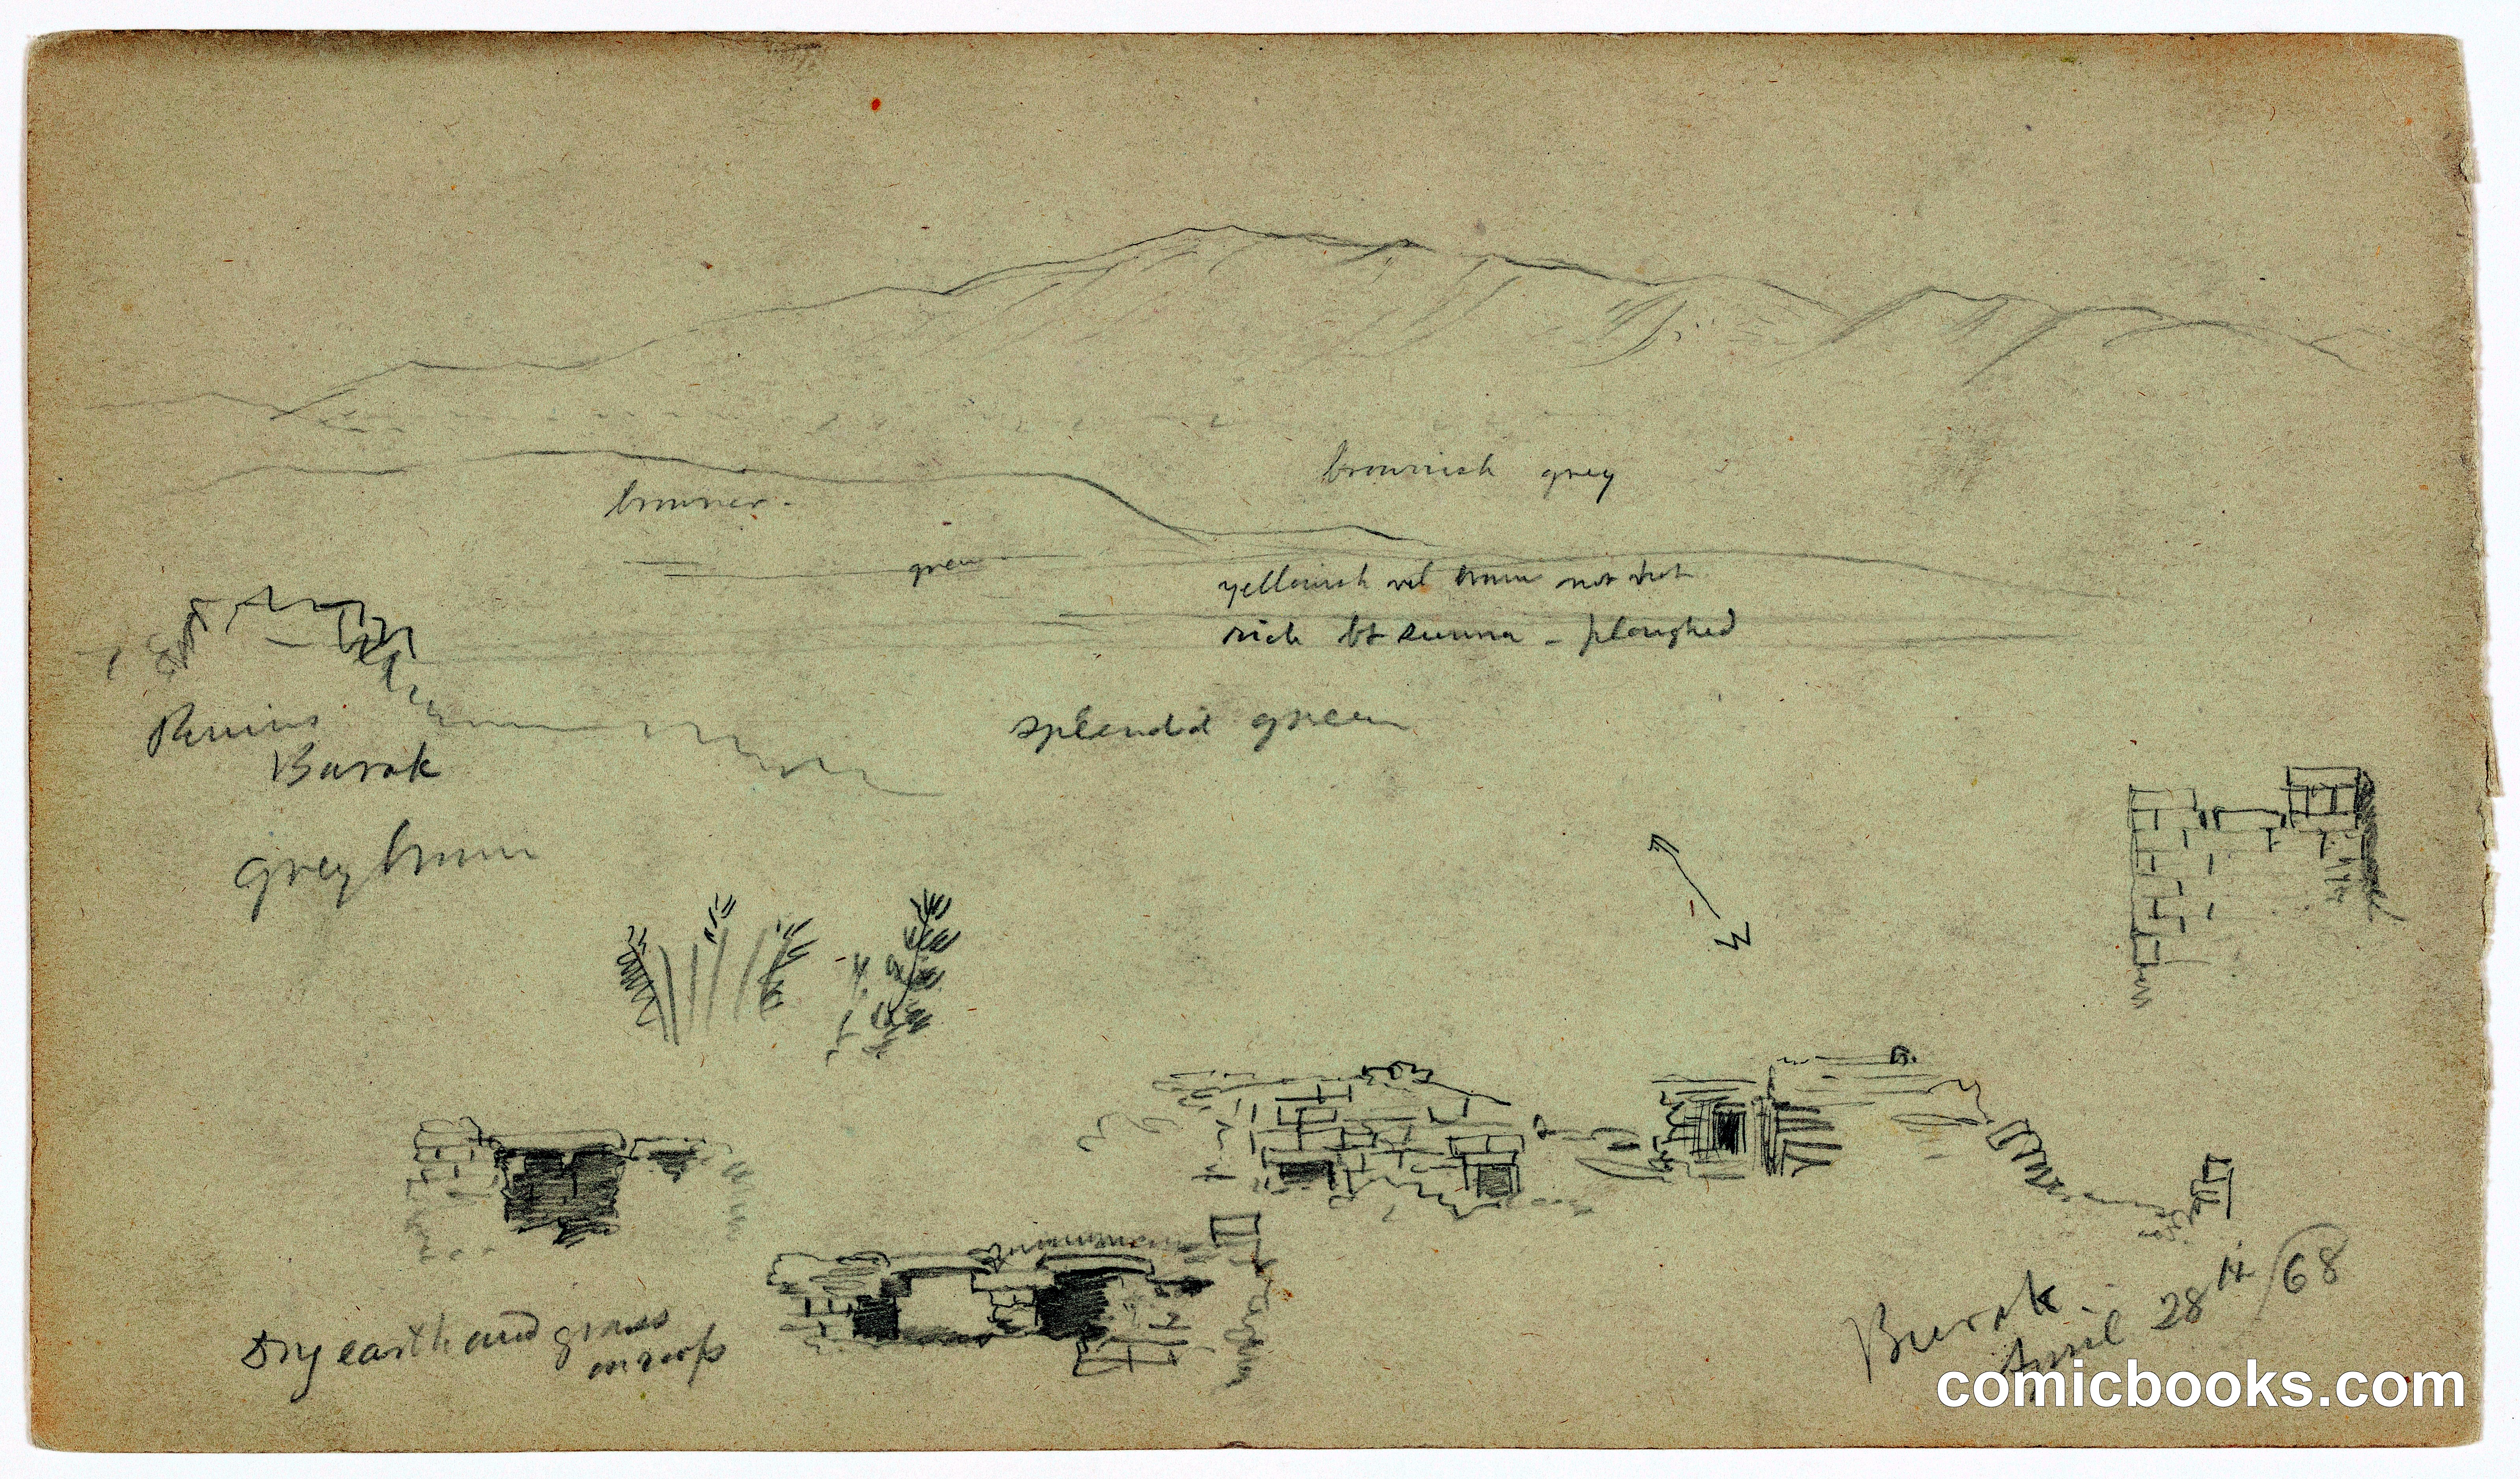 brownish grey
browner -
green
yellowish red brown not hot
rich bt sienna - ploughed
splendid green
Ruins
Burak
Grey brown
Dry earth and grass
on roofs
Burak -
April 28th /68
comicbooks.com